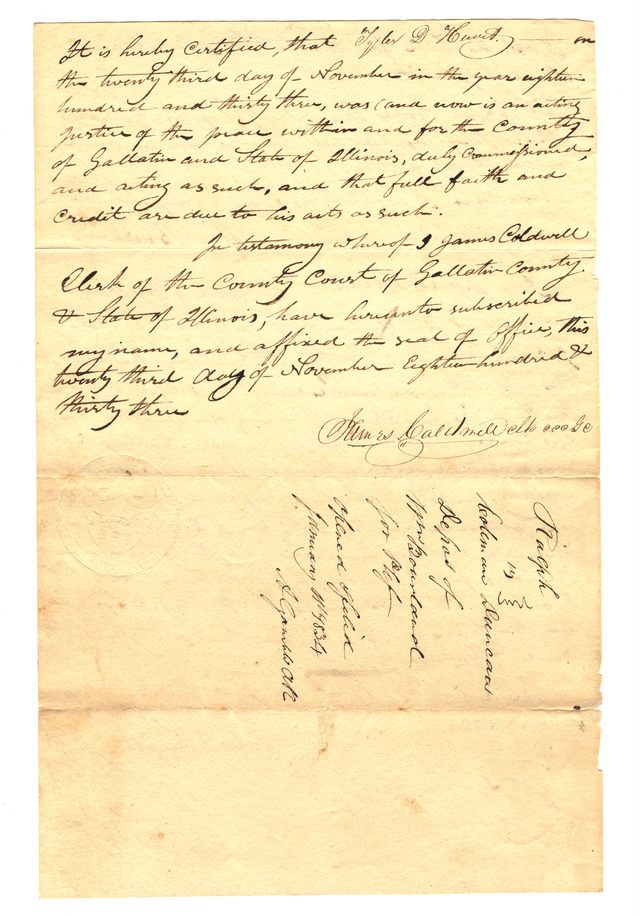 It is hereby certified, that Tyler D Hewit. on
the twenty third day of November in the year eighteen
hundred and thirty three, was (and now is an acting
Justice of the peace within and for the County
of Gallatin and State of Illinois, duly Commissioned,
and acting as such, and that full faith and
credit are due to his acts as such.
In testimony whereof I James Caldwell
Clerk of the County Court of Gallatin County
& State of Illinois, have hereunto subscribed
my name, and affixed the seal of office, this
twenty third day of November Eighteen hundred &
thirty three
James Caldwell clk ccc Gc
Ralph
vs
Coleman Duncan
Depos of
Wm Bourland
for Plf
Opened & filed
January 1834
A Gamble Clk